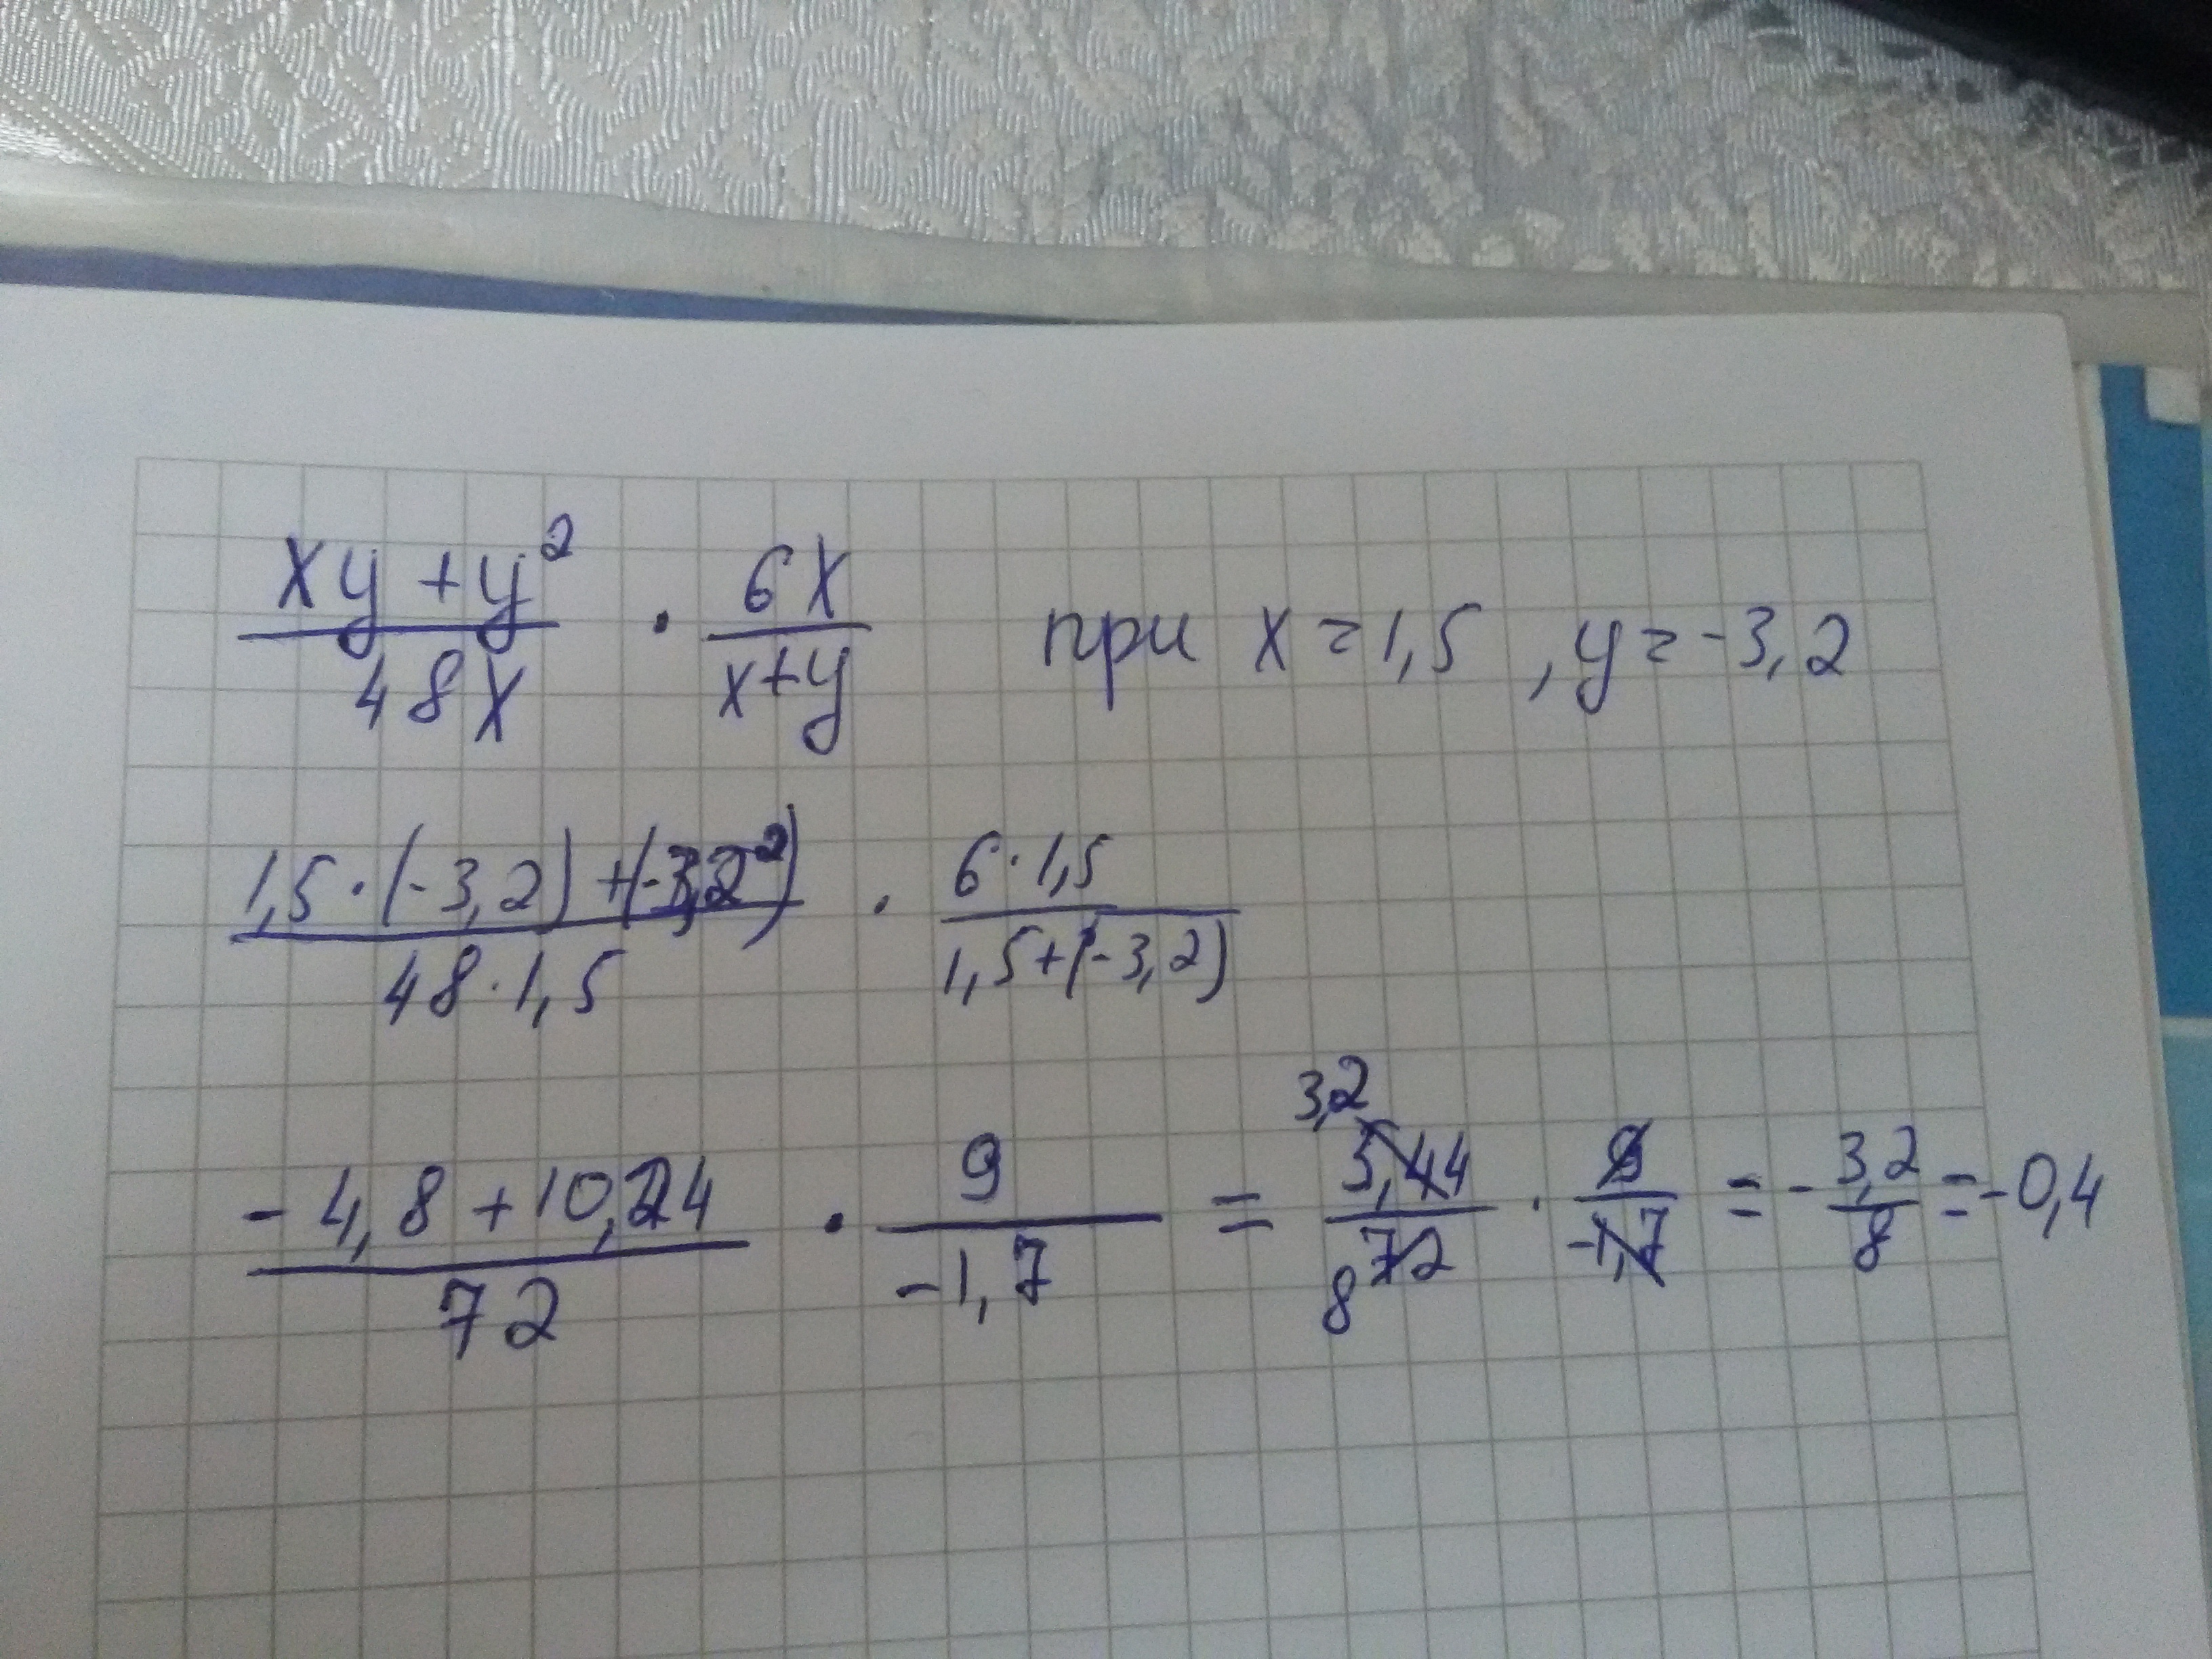 xy+y² / 48x · 6x / x+y при x=1,5 , y=-3,2
1,5·(-3,2)+(-3,2²) / 48·1,5 · 6·1,5 / 1,5+(-3,2)
-4,8+10,24 / 72 · 9 / -1,7 = 3,2 5,44 / 8 72 · 9 / -1,7 = - 3,2 / 8 = -0,4